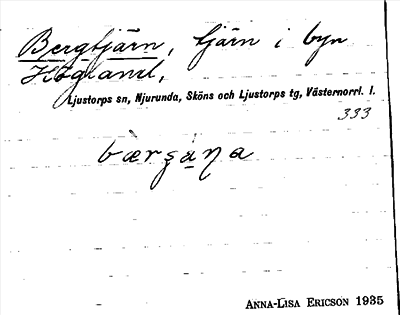 Bergtjärn, tjärn i byn
Högland,
Ljustorps sn, Njurunda, Sköns och Ljustorps tg, Västernorrl. l.
333
bærşaŋa
ANNA-LISA ERICSON 1935